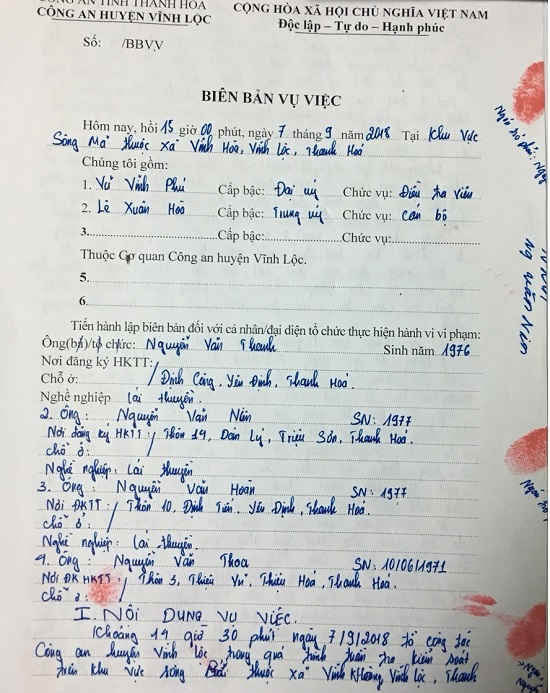 CÔNG AN TỈNH THANH HÓA
CÔNG AN HUYỆN VĨNH LỘC
CỘNG HÒA XÃ HỘI CHỦ NGHĨA VIỆT NAM
Độc lập – Tự do – Hạnh phúc
Số: /BBVV
BIÊN BẢN VỤ VIỆC
Hôm nay, hồi 15 giờ 00 phút, ngày 7 tháng 9 năm 2018 Tại Khu vực
Sông Mã thuộc xã Vĩnh Hoà, Vĩnh Lộc, Thanh Hoá
Chúng tôi gồm:
1. Vũ Vĩnh Phú Cấp bậc: Đại uý Chức vụ: Điều tra viên
2. Lê Xuân Hoà Cấp bậc: Trung uý Chức vụ: Cán bộ
3. Cấp bậc: Chức vụ:
Thuộc Cơ quan Công an huyện Vĩnh Lộc.
5.
6.
Tiến hành lập biên bản đối với cá nhân/đại diện tổ chức thực hiện hành vi vi phạm:
Ông(bà)/tổ chức: Nguyễn Văn Thanh Sinh năm 1976
Nơi đăng ký HKTT:
Chỗ ở: Định Công, Yên Định, Thanh Hoá.
Nghề nghiệp Lái thuyền.
2. Ông: Nguyễn Văn Năm SN: 1977
Nơi đăng ký HKTT: Thôn 14, Dân Lý, Triệu Sơn, Thanh Hoá.
chỗ ở:
Nghề nghiệp: Lái thuyền
3. Ông: Nguyễn Văn Hoàn SN: 1977
Nơi ĐKTT: Thôn 10, Định Tiến, Yên Định, Thanh Hoá.
chỗ ở:
Nghề nghiệp: Lái thuyền.
4. Ông: Nguyễn Văn Thoa SN: 10/06/1971
Nơi ĐK HKTT: Thôn 3, Thiệu Vũ, Thiệu Hoá, Thanh Hoá.
chỗ ở:
I. NỘI DUNG VỤ VIỆC.
Khoảng 14 giờ 30 phút ngày 7/9/2018 tổ công tác
Công an huyện Vĩnh Lộc trong quá trình tuần tra kiểm soát
trên khu vực sông Mã thuộc xã Vĩnh Khang Vĩnh Lộc, Thanh